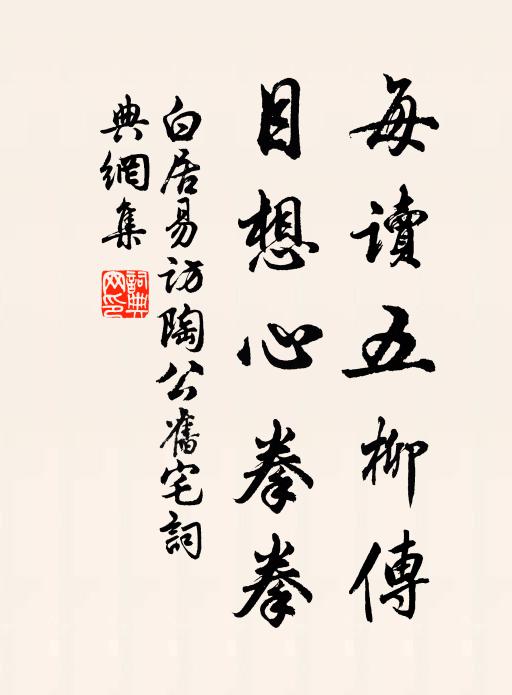 每讀五柳傳
目想心拳拳
白居易訪陶公舊宅詞
典網集
詞典
网印